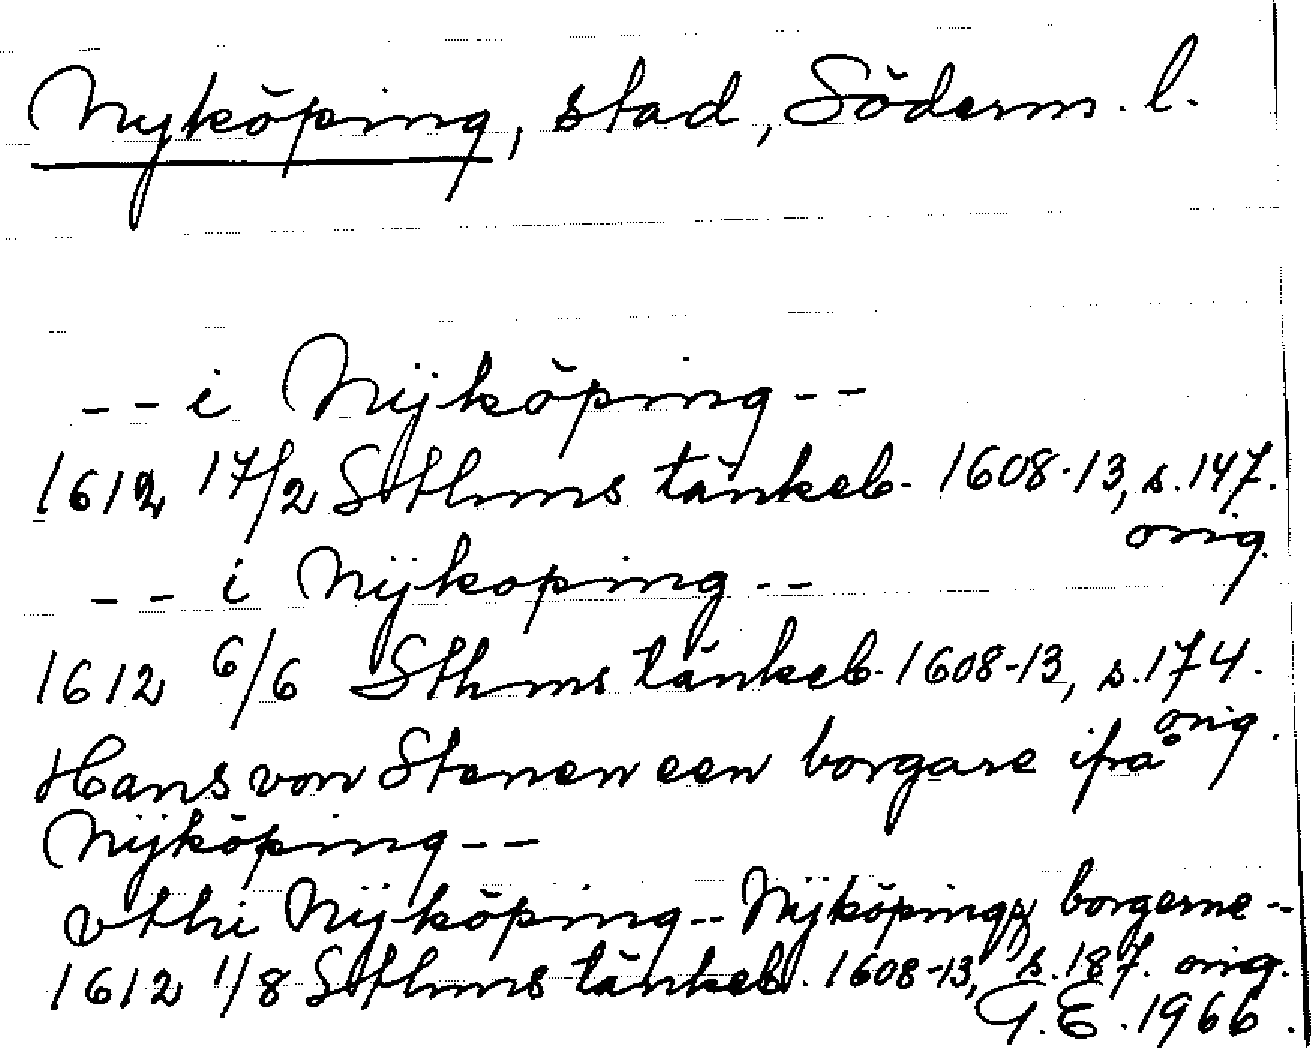 Nyköping, stad, Söderm. l.
-- i Nijköping --
1612 17/2 Sthms tänkeb. 1608-13, s. 147.
orig.
-- i Nijkoping --
1612 6/6 Sthms tänkeb. 1608-13, s. 174.
orig.
Hans von Stenen een borgare ifrå
Nijköping --
vthi Nijköping -- Nijköpings borgerne --
1612 1/8 Sthms tänkeb. 1608-13, s. 187. orig.
G.E. 1966.